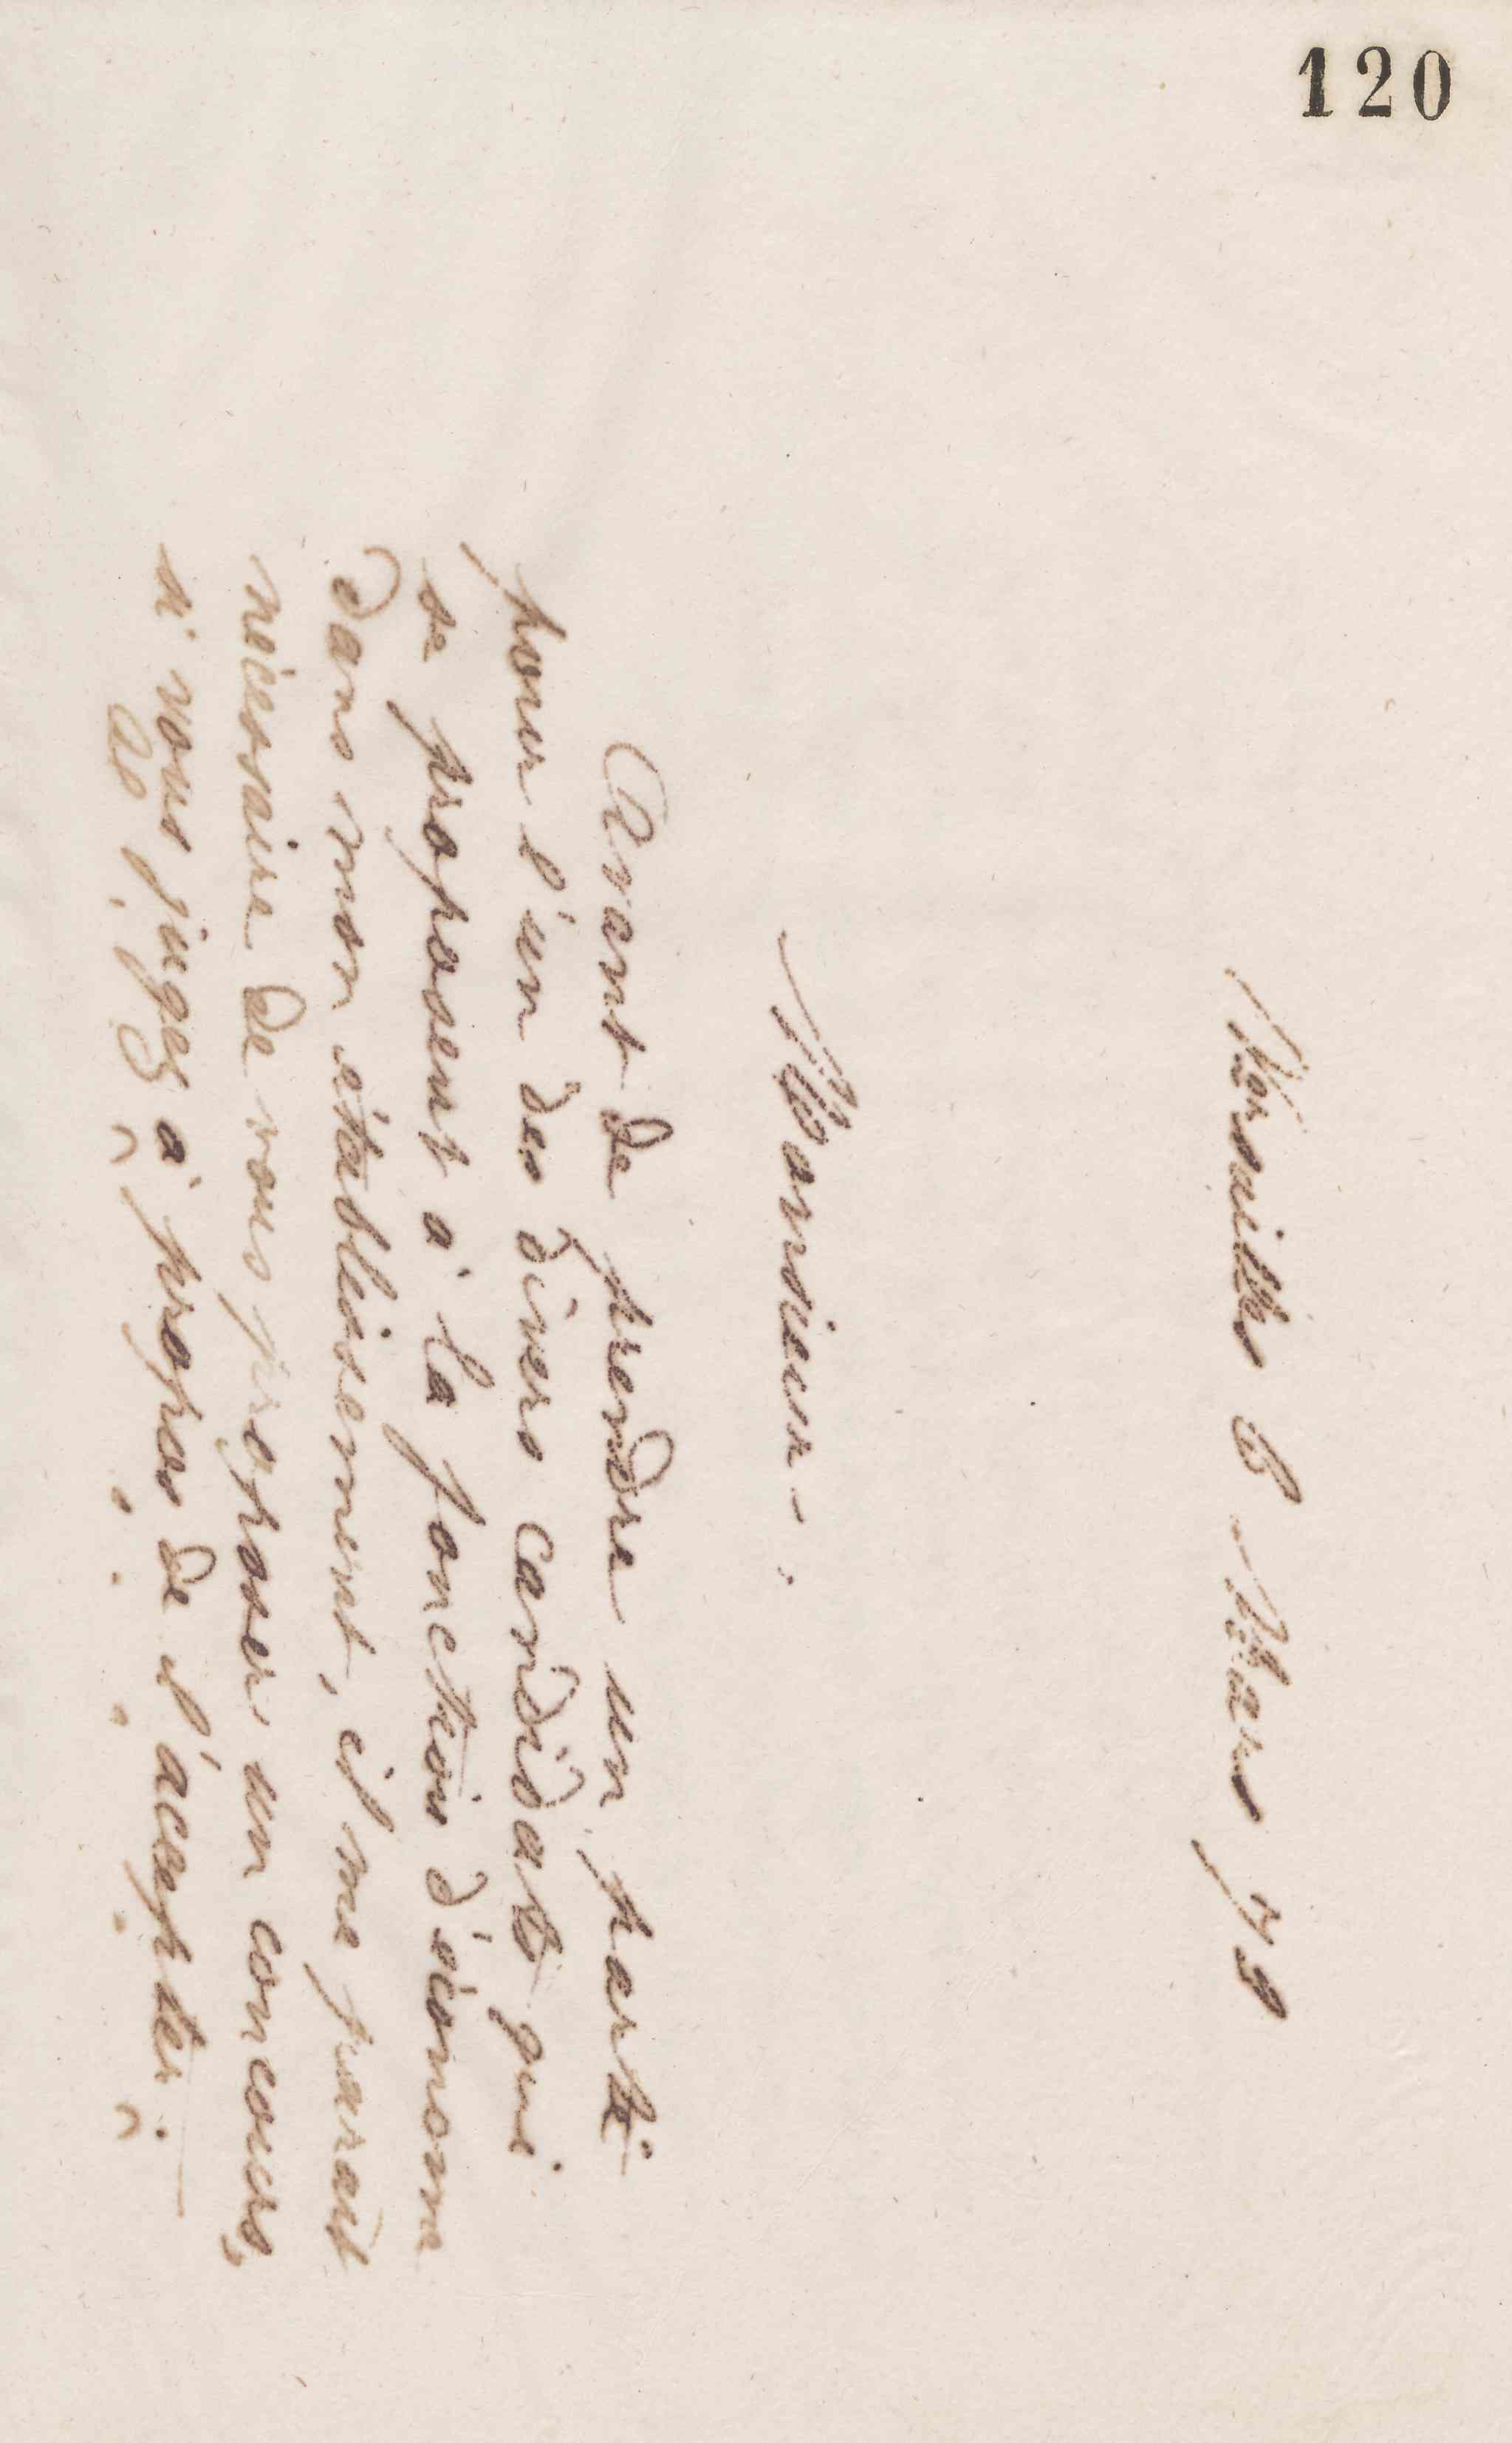 120
Versailles 6 Mars 79
Monsieur -
Avant de prendre un parti
pour l'un des divers candidats qui
se proposent à la fonction d'économe
dans mon établissement, il me parait
nécessaire de vous proposer un concours,
si vous jugez à propos de l'accepter. -